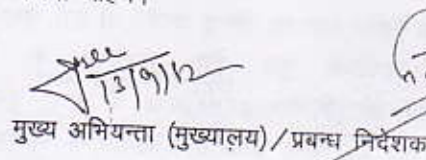 13/9/12
मुख्य अभियन्ता (मुख्यालय)/प्रबन्ध निदेशक